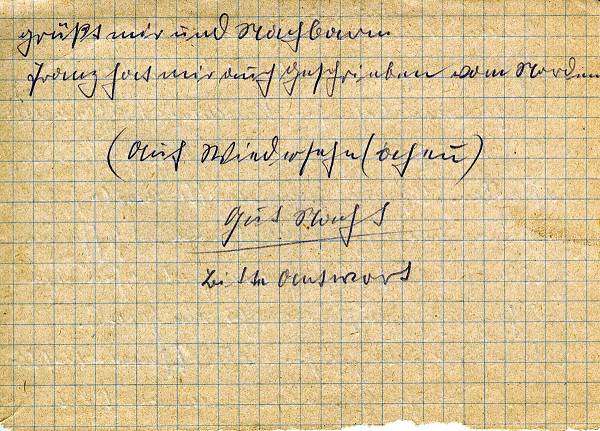 grüßt mir und Nachbarn
Franz hat mir auch geschrieben vom Norden
(Auf Wiedersehn
Gut Nacht
bitte Antwort